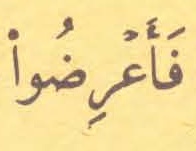 فَأَعْرِضُواْ